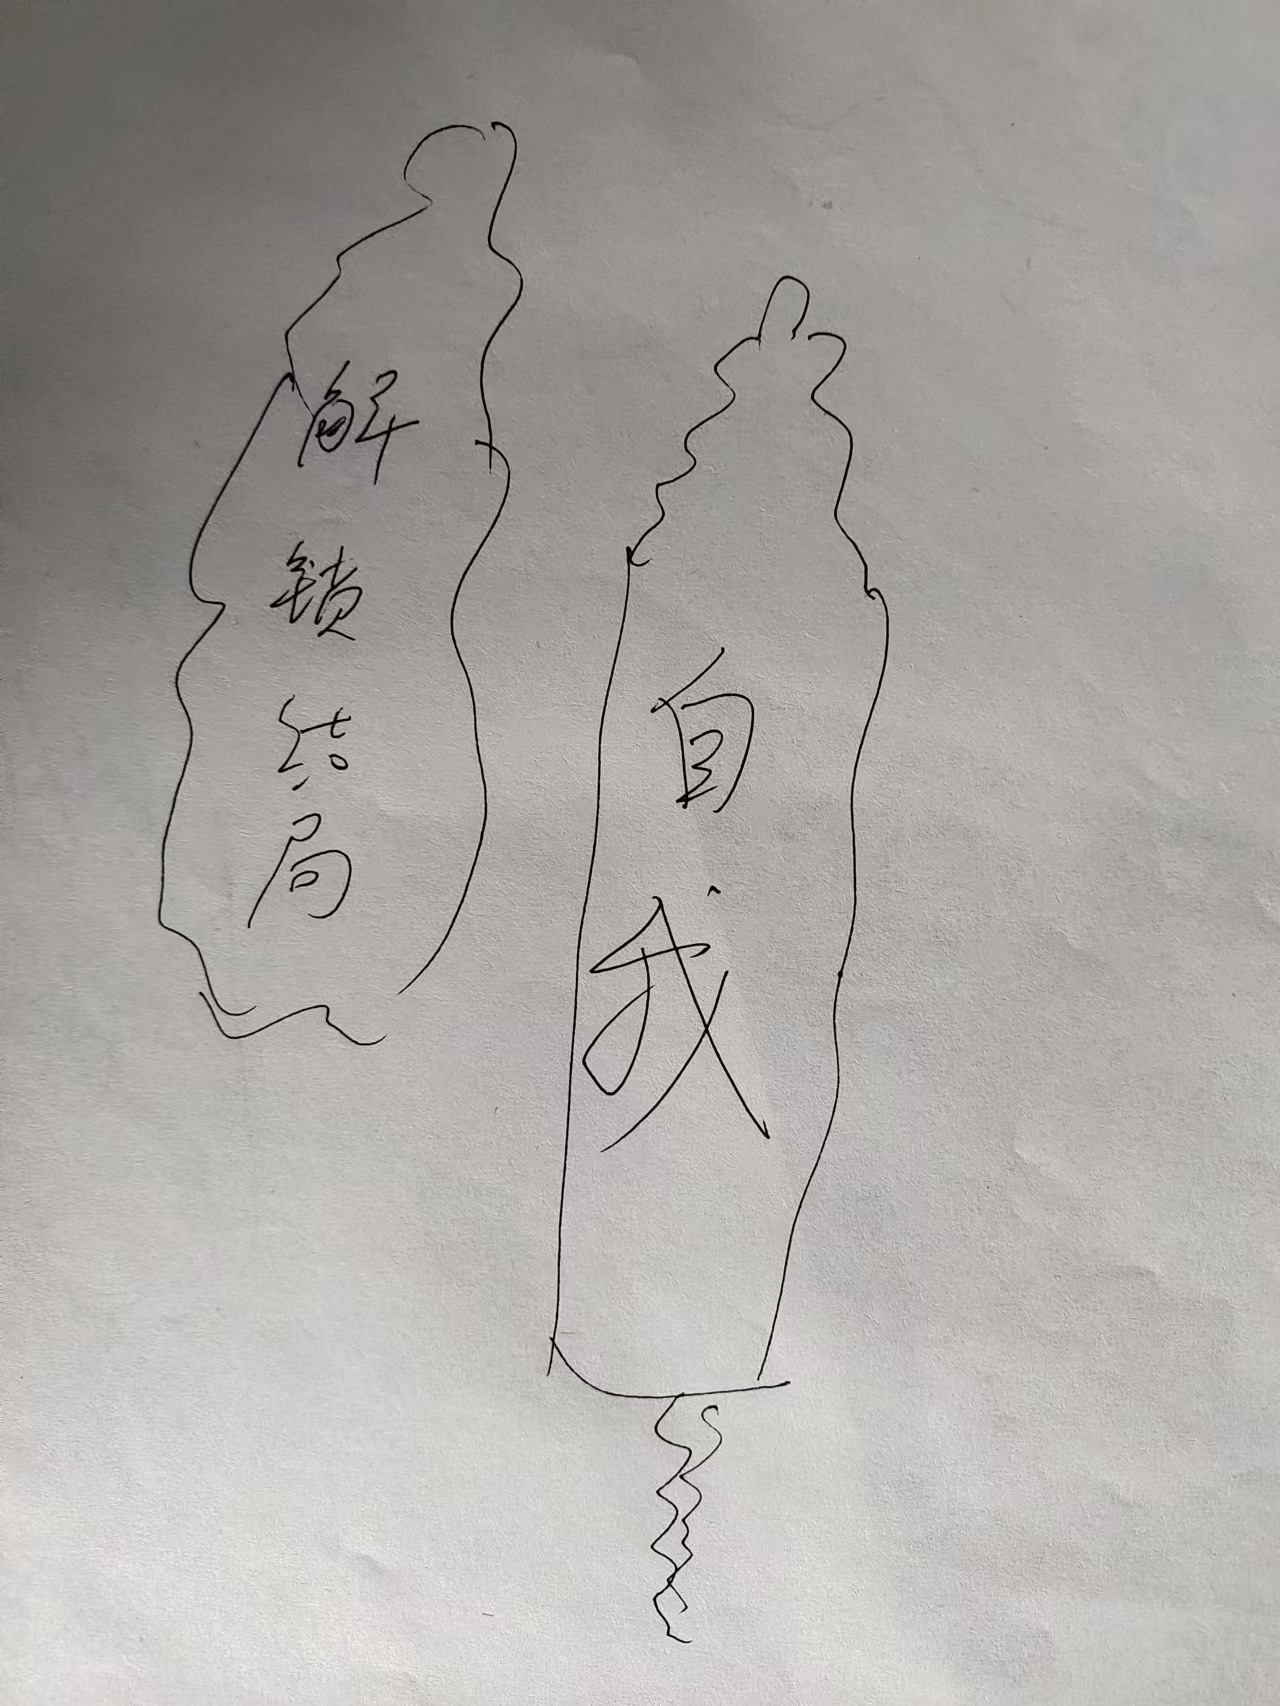 解锁结局
自我